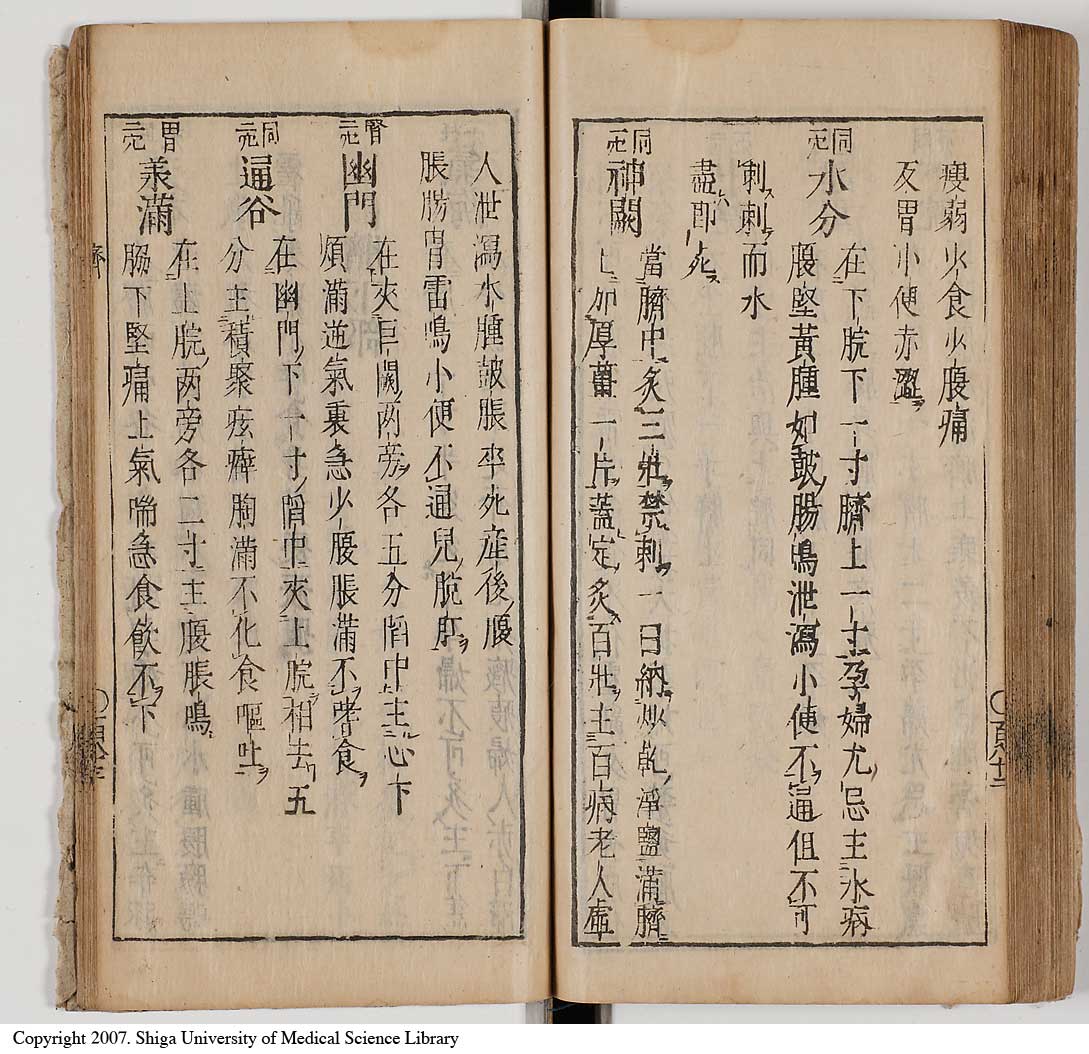 瘦弱少食少腹痛
反胃小便赤澀
同一穴
水分
在下脘下一寸臍上一寸孕婦尤忌主水病
腹堅黃腫如鼓腸鳴泄瀉小便不通但不可
刺刺而水
盡即死
同一穴
神闕
當臍中灸三壯禁刺一曰納炒乾淨鹽滿臍
上加厚薑一片蓋定灸百壯主百病老人虛
人泄瀉水腫鼓脹卒死產後腹
脹腸胃雷鳴小便不通兒脫肛
腎二穴
幽門
在夾巨闕兩旁各五分陷中主心下
煩滿逆氣裏急少腹脹滿不嗜食
同二穴
通谷
在幽門下一寸陷中夾上脘相去五
分主積聚痃癖胸滿不化食嘔吐
胃二穴
承滿
在上脘兩旁各二寸主腹脹鳴
脇下堅痛上氣喘急食飲不下
Copyright 2007. Shiga University of Medical Science Library